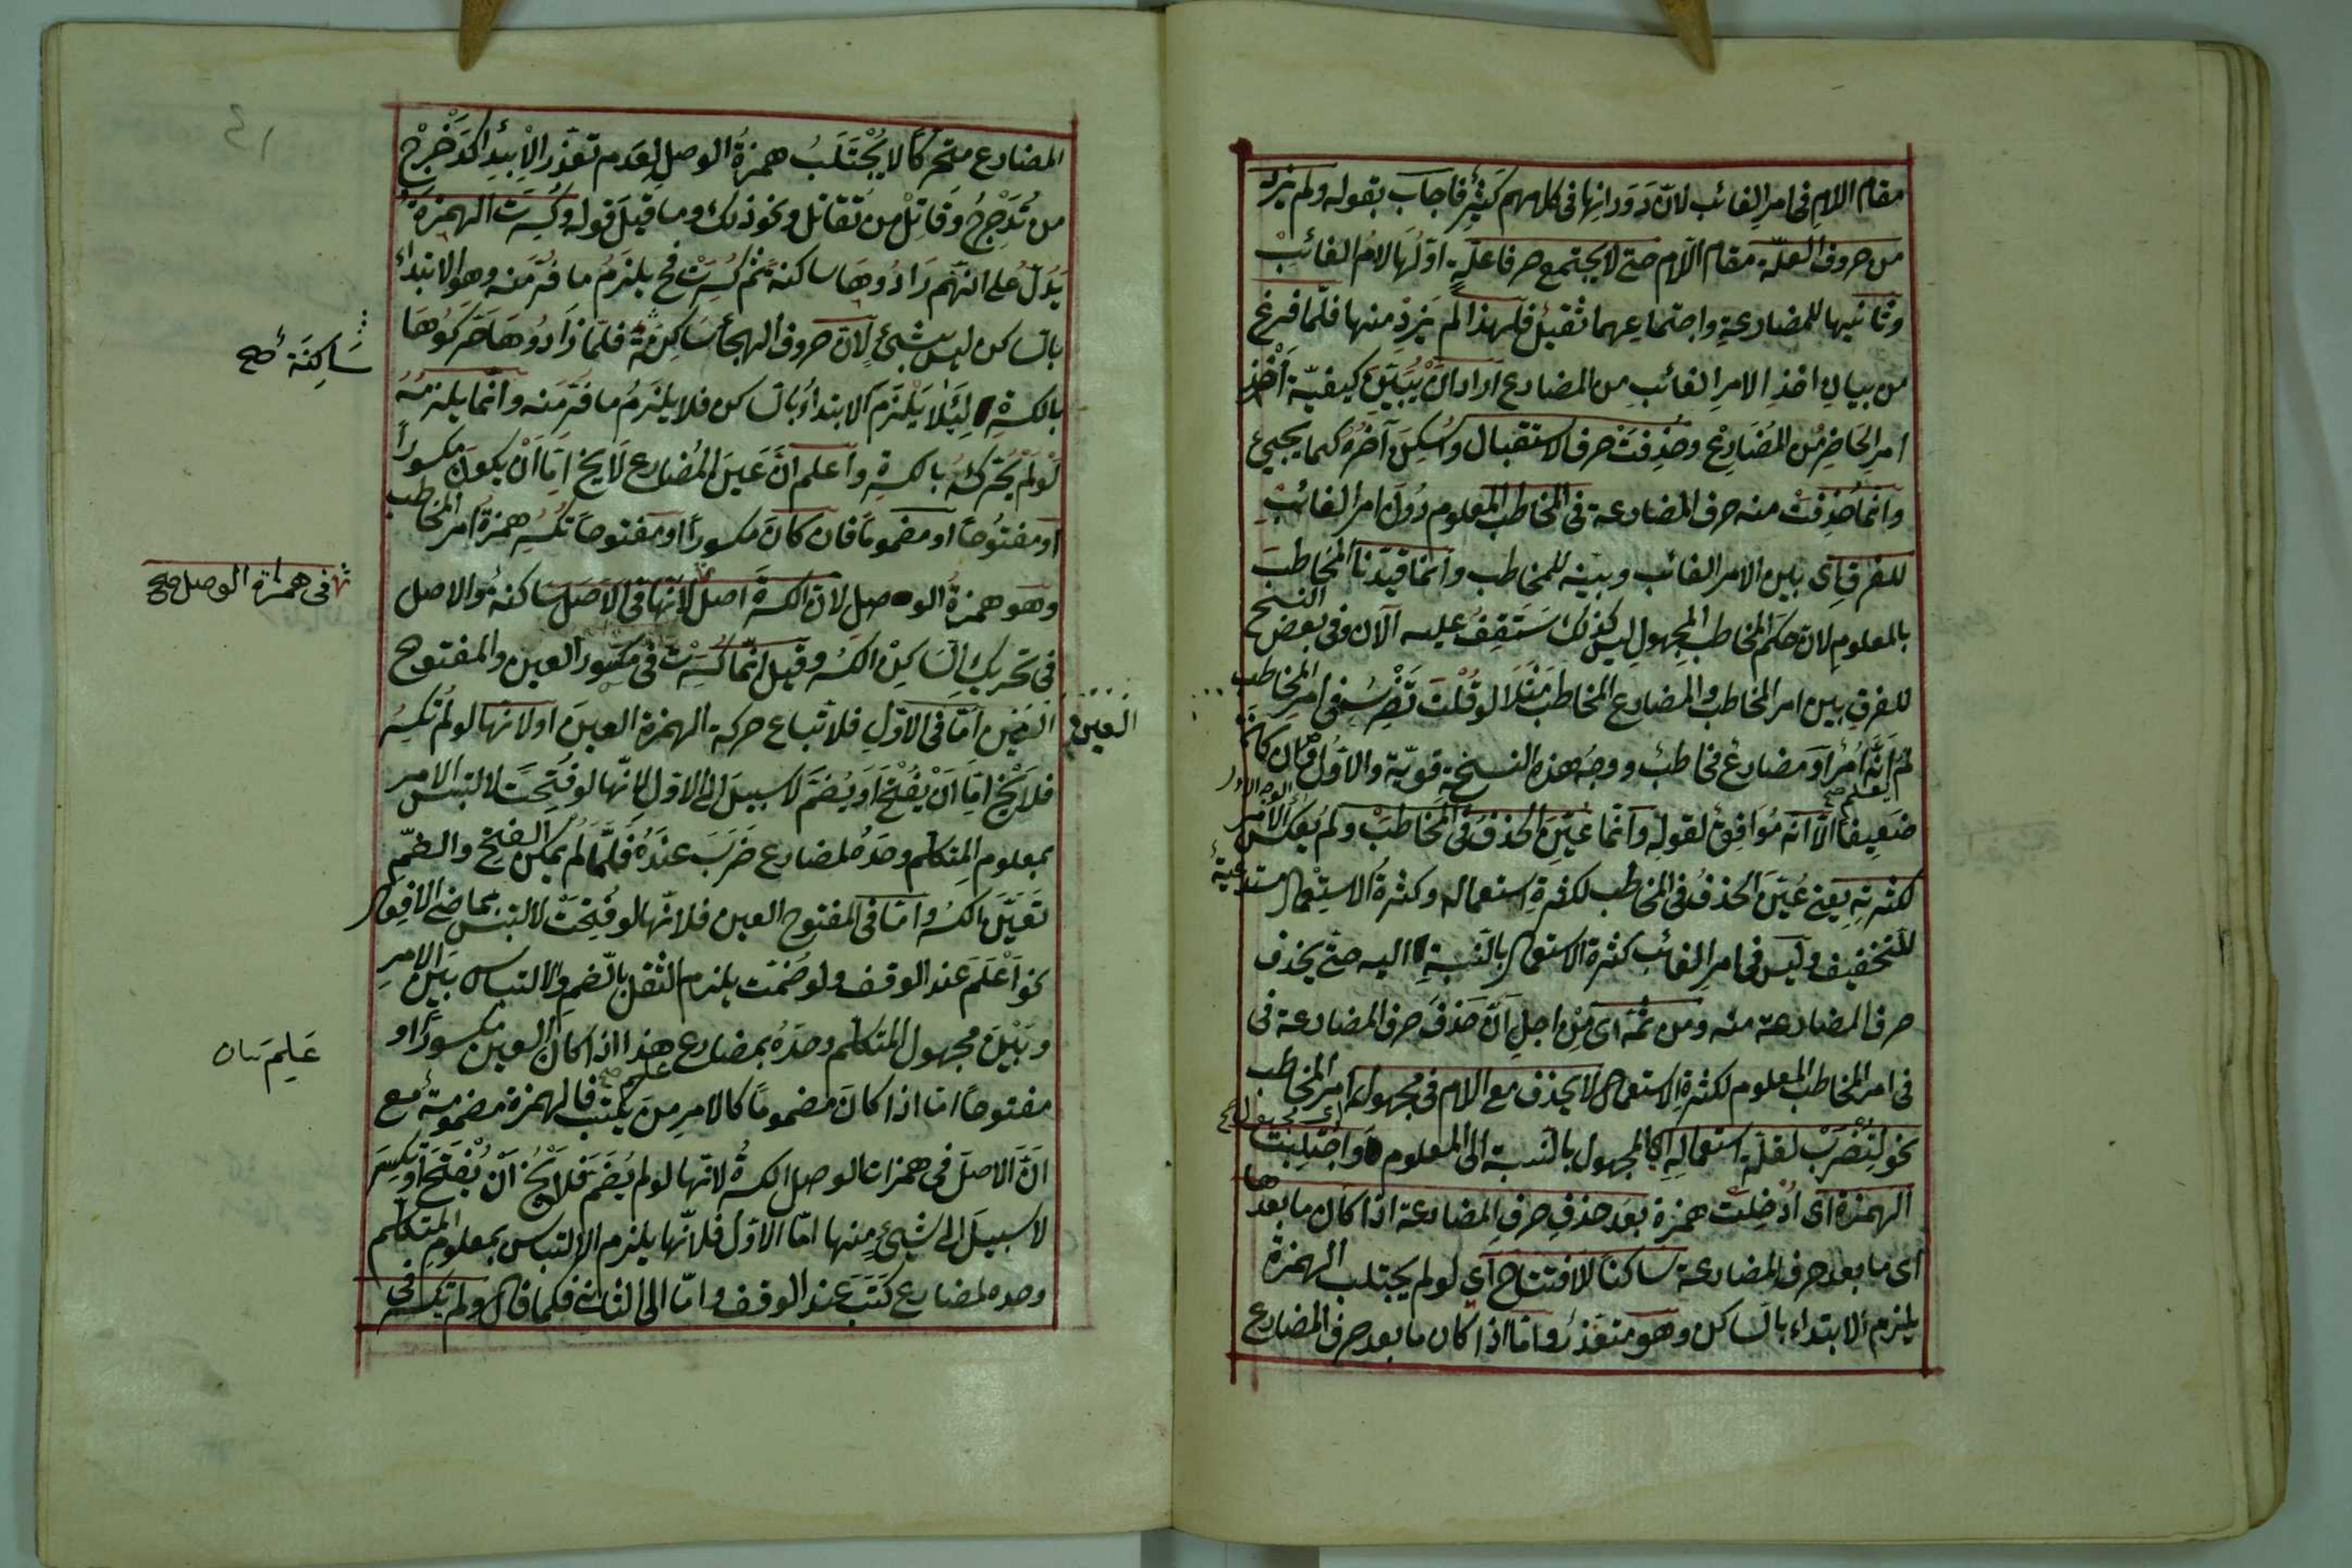 مقام اللام فى امر الغائب لانّ دَوَرانها فى كلامهم كثير فاجاب بقوله ولم يزد
من حروف العلّة مقام اللام حتى لا يجتمع حرفا علّةٍ اوّلُها لامُ الغائبِ
وثانيها للمضارعةِ واجتماعهما ثقيل فلهذا لم يَزِدْ منها فلمّا فرغ
من بيان اخذِ الامرِ الغائبِ من المضارع اراد انْ يُبَيِّنَ كيفيّة أَخْذِ
امرِ الحَاضِرِ من المُضَارِعِ وحُذِفَتْ حرف الاستقبال واُسْكِنَ آخرُهُ كما يجيئ
وانّما حُذِفَتْ منه حرف المضارعة فى المخاطب المعلوم دُونَ امر الغائبِ
للفرق اى بين الامر الغائب وبينه للمخاطب وانّما قيّدنا المُخَاطبَ
بالمعلومِ لانّ حكم المخاطب المجهولِ ليس كذلك سَتَقِفُ عليه الآن وفى بعض النسخ
للفرقِ بين امر المخاطب والمضارع المخاطب مَثَلًا لو قُلْتَ تَضْرِبُ فى امر المخاطب
لم يعلم انّه اَمْرٌ اَوْ مضارعُ مخاطبٍ ووجهُ هذه النسخة قويّة والاوّلُ وان كانَ
ضعيفًا الّا انه مُوَافِقٌ لقولِهِ وانّما عُيِّنَ الحذفُ فى المُخَاطَبِ ولم يُعكس الأمر
لكثرتِهِ يعنى عُيِّنَ الحذفُ فى المخاطب لكثرةِ استعماله وكثرةُ الاستِعْمَالِ مستدعيةٌ
للتخفيف وليس فى امرِ الغائب كثرة الاستعمال بالنّسبةِ اليه حتى يحذف
حرف المضارعة منه ومن ثَمّة اى مِنْ اجلِ انّ حَذْفَ حرفِ المضارعة فى
فى امر المخاطب المعلوم لكثرةِ الاستعمال لا يحذف مع اللام فى مجهول امر المخاطب
نحو لِتُضْرَبْ لقلّة استعمالِهِ اى المجهول بالنّسبة الى المعلوم وَاجْتُلِبَتْ
الهمزة اى اُدْخِلت همزة بعد حذفِ حرفِ المضارعة اذا كان ما بعدها
اى ما بعد حرف المضارعة ساكنًا للافتتاح اى لو لم يجتلب الهمزةُ
يلزم الابتداء بالسّاكن وهو متعذر وامّا اذا كان ما بعد حرف المضارع
المضارع متحركًا لا يُجْتَلَبُ همزةُ الوصلِ لِعَدم تعذّر الاِبْتِدا كَدَحْرِجْ
من تُدَحْرِجُ وقَاتِلْ من تُقَاتل ونحو ذلك وما قيلَ قوله وكُسِرَت الهمزةُ
يَدُلُّ على انّهم زَادُوها ساكنةً ثمّ كُسِرَتْ فح يلزَمُ ما فُرَّ منه وهو الابتداءُ
بالسّاكن ليس بشئٍ لانّ حروف الهجأ ساكنة فلمّا زَادُوها حَرَّكُوهَا
بالكسرةِ لِئَلَّا يَلْزَمَ الابتداءُ بالسّاكن فلا يلزَمُ ما فُرّ منه وانّما يلزمُهُ
لَوْ لم يُحَرّكهُ بالكسرةِ واعلم انَّ عَينَ المُضارع لا يخ امّا اَنْ يكونَ مكسوراً
او مفتُوحًا او مضمومًا فان كانَ مكسوراً او مفتوحًا تُكْسَرُ همزةُ امرِ المخاطب
وهو همزةُ الوصل لانّ الكسرةَ اصلٌ لانّها فى الاَصَلِ ساكنة والاصل
فى تحريك السّاكنِ الكسرُ وقيل انّما كُسِرَتْ فى مكسور العين والمفتوح
العين امّا فى الاوّلِ فلاتّباع حركة الهمزة العينَ اولانّها لو لم تُكسِر
فلا يَخ امّا اَنْ يُفْتَحَ اَوْ يُضَمَّ لا سبيلَ الى الاوّل لانّها لو فُتِحَتْ لالتبس الامر
بمعلوم المتكلم وحدهُ لمضارع ضَرَبَ عندَهُ فلمّا لم يكن الفتح والضمّ
تعيّنَ الكسرُ وامّا فى المفتوح العين فلانّها لو فُتِحَتْ لالتبس بماضى الافعال
نحو اَعْلَمَ عند الوقف ولو ضُمّت يلزم الثقل بالضّمِ والالتباس بَيْنَ الامرِ
وبَيْنَ مجهول المتكلم وحدَهُ بمضارع علم هذا اذا كان العين مكسوراً او
مفتوحًا امّا اذا كانَ مضمومًا كالامرِ مِنَ يكتب فالهمزة مضمومةٌ مع
انّ الاصلَ فى همزات الوصل الكسرةُ لانّها لو لم يُضَمَّ فلا يَخُ اَنْ يُفْتَحَ اَوْ تكسِرَ
لا سبيلَ الى شيئٍ منها امّا الاوّل فلانّها يلزم الالتباس بمعلومِ المتكلم
وحده لمضارع كَتَبَ عند الوقف وامّا الى الثانى فكما قال ولم تكسر فى
سَاكِنَة صح
فى همزة الوصل صح
العين
عَلِمَ بيان